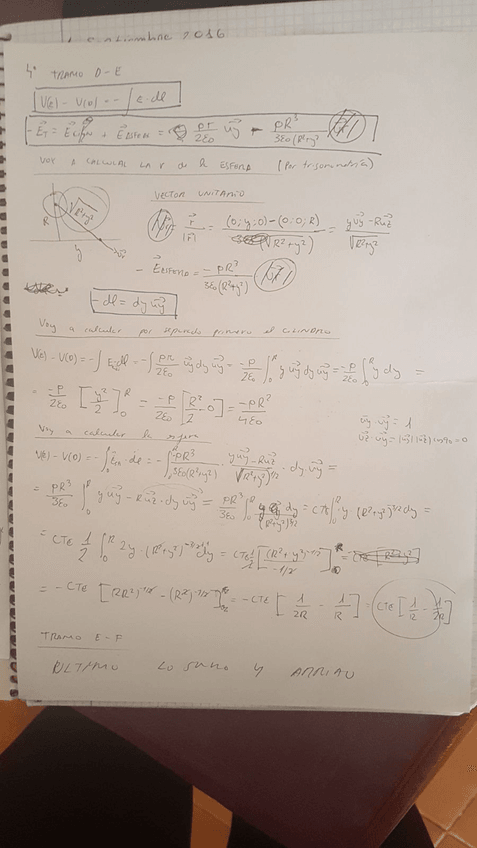 Septiembre 2016
4º TRAMO D-E
V(E) - V(D) = - ∫ E · dl
- E_T = E + E_ESFERA = ρr/2ε0 uy - ρR³/3ε0(R²+y²)
VOY A CALCULAR LA r de R ESFERA (Por trigonometría)
VECTOR UNITARIO
R √R²+y² y
r/|r| = (0; y; 0) - (0; 0; R) / (√R²+y²) = y uy - R uz / √R²+y²
- E_ESFERA = -ρR³/3ε0(R²+y²)
- dl = dy uy
Voy a calcular por separado primero el CILINDRO
V(E) - V(D) = -∫ E dl = -∫ ρr/2ε0 uy dy uy = -ρ/2ε0 ∫₀ᴿ y uy dy uy = -ρ/2ε0 ∫₀ᴿ y dy =
= -ρ/2ε0 [y²/2]₀ᴿ = -ρ/2ε0 [R²/2 - 0] = -ρR²/4ε0
uy · uy = 1
uz · uy = = 0
Voy a calcular la esfera
V(E) - V(D) = -∫ dl = -∫ -ρR³/3ε0(R²+y²) · y uy - R uz / (R²+y²)^1/2 · dy · uy =
= ρR³/3ε0 ∫₀ᴿ y uy - R uz · dy uy = ρR³/3ε0 ∫₀ᴿ y dy/(R²+y²)^3/2 = CTE ∫₀ᴿ y · (R²+y²)^3/2 dy =
= CTE 1/2 ∫₀ᴿ 2y · (R²+y²) dy = CTE 1/2 [(R²+y²)^-1/2 / -1/2]₀ᴿ =
= -CTE [(2R²)^-1/2 - (R²)^-1/2] = -CTE [1/2R - 1/R] = CTE [1/R - 1/2R]
TRAMO E-F
ULTIMO LO SUMO Y